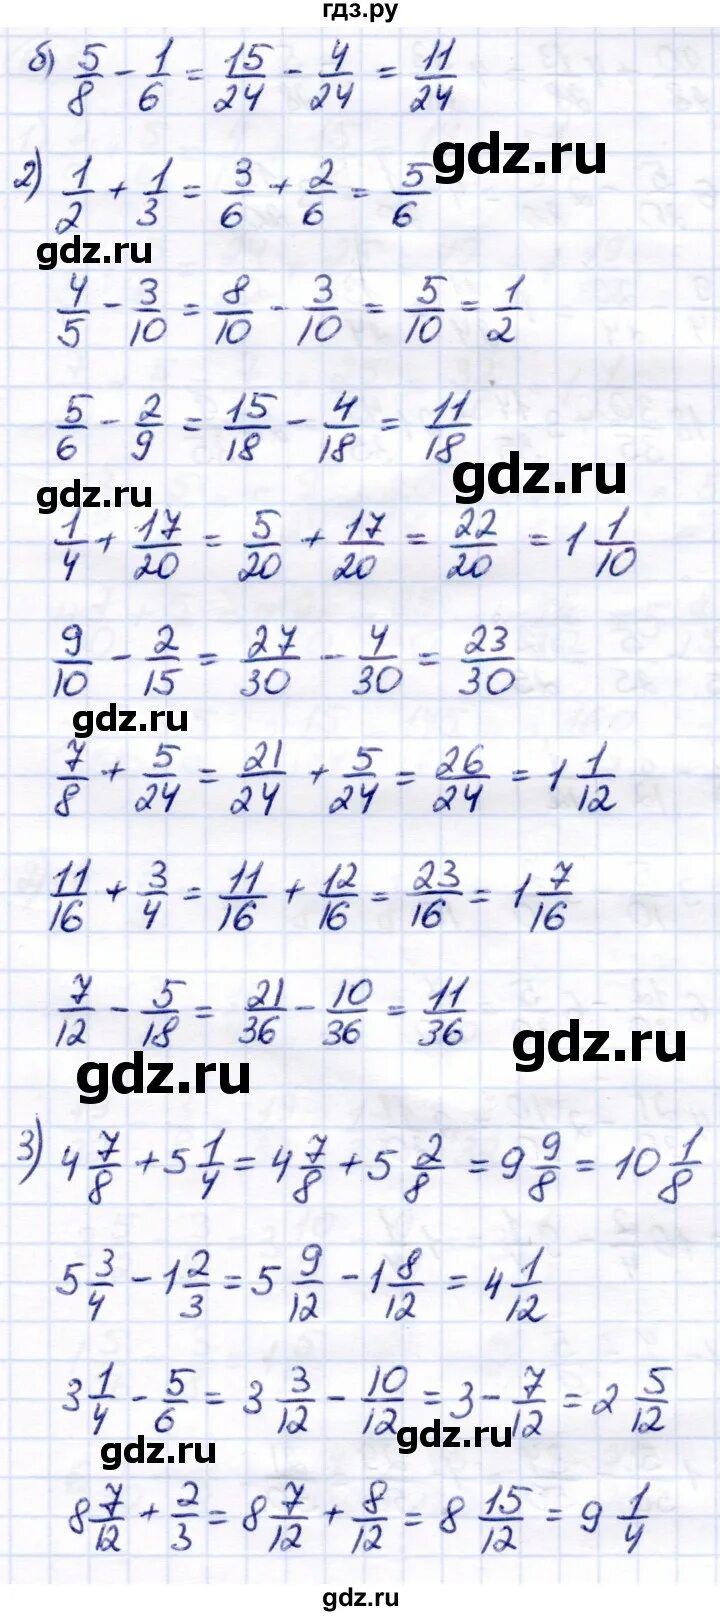 гдз.ру
б) 5/8 - 1/6 = 15/24 - 4/24 = 11/24
gdz.ru
2) 1/2 + 1/3 = 3/6 + 2/6 = 5/6
gdz.ru
4/5 - 3/10 = 8/10 - 3/10 = 5/10 = 1/2
5/6 - 2/9 = 15/18 - 4/18 = 11/18
gdz.ru
gdz.ru
1/4 + 17/20 = 5/20 + 17/20 = 22/20 = 1 1/10
9/10 - 2/15 = 27/30 - 4/30 = 23/30
gdz.ru
7/8 + 5/24 = 21/24 + 5/24 = 26/24 = 1 1/12
11/16 + 3/4 = 11/16 + 12/16 = 23/16 = 1 7/16
7/12 - 5/18 = 21/36 - 10/36 = 11/36
gdz.ru
gdz.ru
3) 4 7/8 + 5 1/4 = 4 7/8 + 5 2/8 = 9 9/8 = 10 1/8
5 3/4 - 1 2/3 = 5 9/12 - 1 8/12 = 4 1/12
3 1/4 - 5/6 = 3 3/12 - 10/12 = 3 - 7/12 = 2 5/12
gdz.ru
gdz.ru
8 7/12 + 2/3 = 8 7/12 + 8/12 = 8 15/12 = 9 1/4
gdz.ru